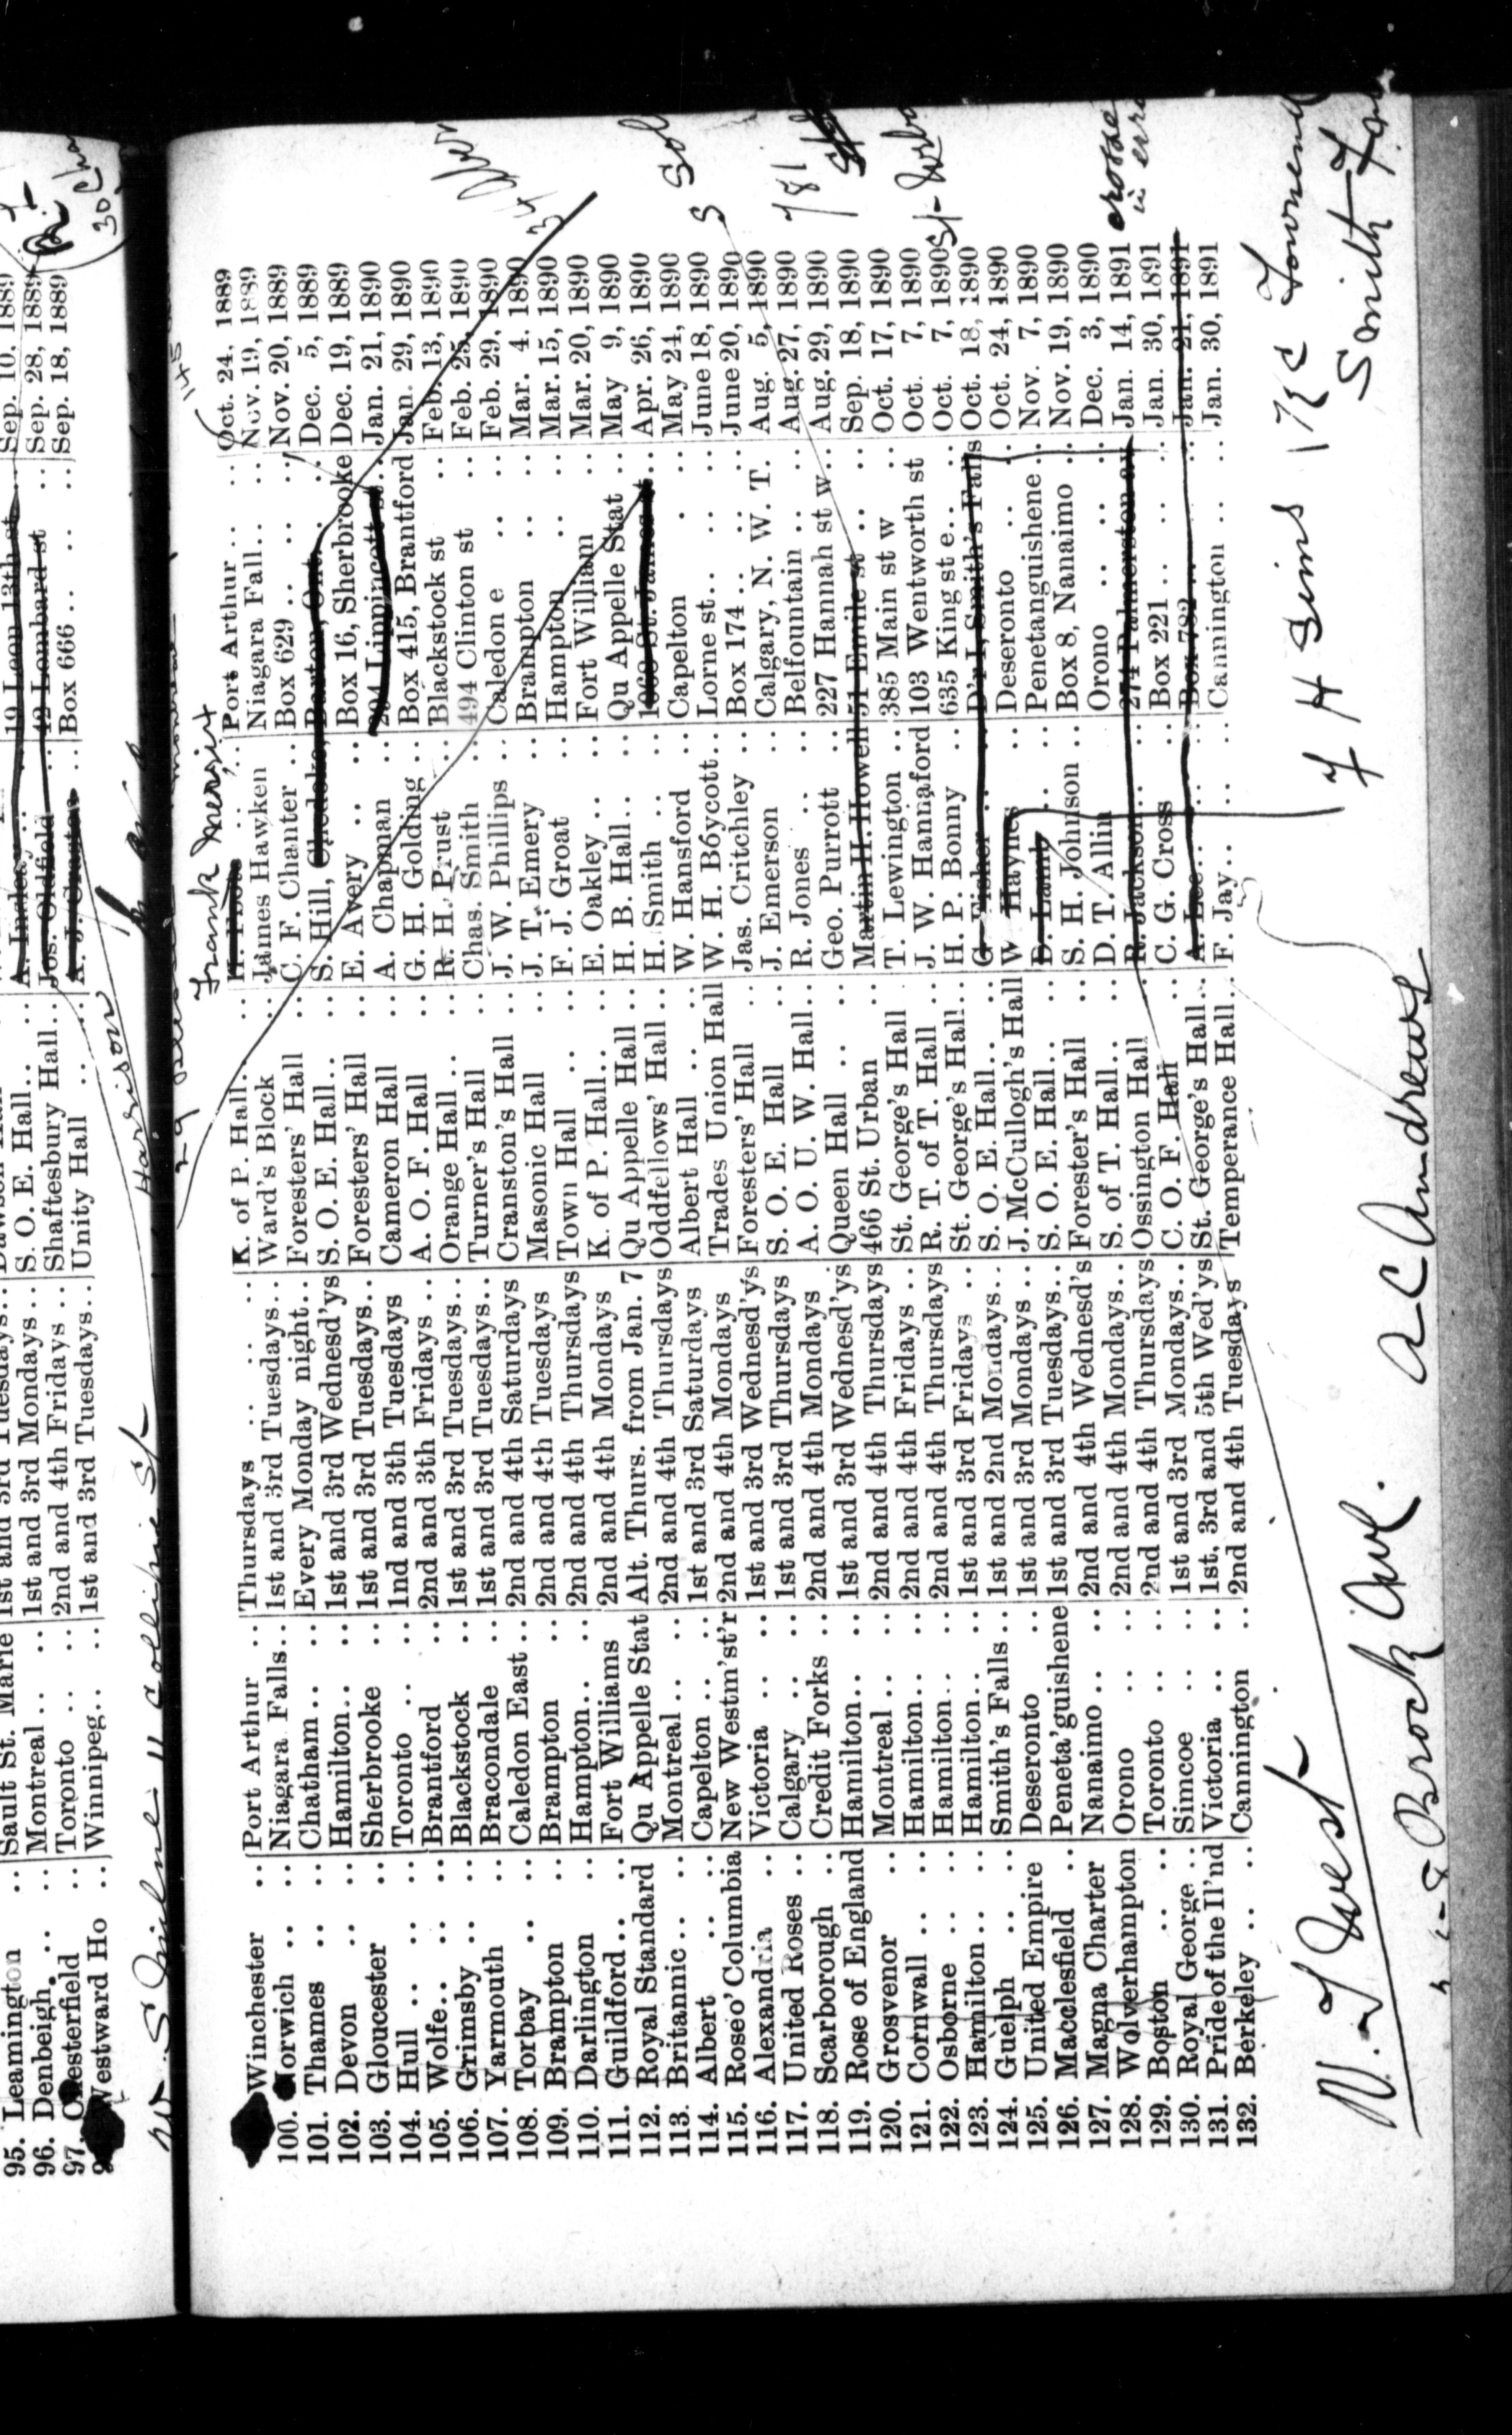 95. Leamington .. Sault St. Marie 1st and 3rd Tuesdays..
96. Denbeigh .. .. Montreal .. .. 1st and 3rd Mondays .. S. O. E. Hall .. .. 19 Leon 13th st .. Sep. 10, 1889
97. Chesterfield .. Toronto .. .. 2nd and 4th Fridays .. Shaftesbury Hall .. Jos. Oldfield .. 42 Lombard st .. Sep. 28, 1889
Westward Ho .. Winnipeg.. .. 1st and 3rd Tuesdays.. Unity Hall .. .. A. J. .. Box 666 .. .. .. Sep. 18, 1889
30
W. S. Milne 11 Collins St Harrison
Frank Merrit 145
29
Winchester .. Port Arthur .. Thursdays .. .. .. K. of P. Hall.. .. H. .. .. Port Arthur .. .. Oct. 24, 1889
100. Norwich .. .. Niagara Falls.. 1st and 3rd Tuesdays.. Ward's Block .. James Hawken .. Niagara Fall.. .. Nov. 19, 1889
101. Thames .. .. Chatham .. .. Every Monday night.. Foresters' Hall .. C. F. Chanter .. Box 629 .. .. .. Nov. 20, 1889
102. Devon .. .. Hamilton.. .. 1st and 3rd Wednesd'ys S. O. E. Hall.. .. S. Hill, Chedoke, Barton, Ont. .. Dec. 5, 1889
103. Gloucester .. Sherbrooke .. 1st and 3rd Tuesdays.. Foresters' Hall .. E. Avery .. .. Box 16, Sherbrooke Dec. 19, 1889
104. Hull .. .. .. Toronto .. .. 1nd and 3th Tuesdays Cameron Hall .. A. Chapman .. 294 Lippincott st.. Jan. 21, 1890
105. Wolfe.. .. .. Brantford .. 2nd and 3th Fridays .. A. O. F. Hall .. G. H. Golding .. Box 415, Brantford Jan. 29, 1890
106. Grimsby .. .. Blackstock .. 1st and 3rd Tuesdays.. Orange Hall .. .. R. H. Prust .. Blackstock st .. Feb. 13, 1890
107. Yarmouth .. Bracondale .. 1st and 3rd Tuesdays.. Turner's Hall .. Chas. Smith .. 494 Clinton st .. Feb. 25, 1890
108. Torbay .. .. Caledon East .. 2nd and 4th Saturdays Cranston's Hall .. J. W. Phillips .. Caledon e .. .. Feb. 29, 1890
109. Brampton .. Brampton .. 2nd and 4th Tuesdays Masonic Hall .. J. T. Emery .. Brampton .. .. Mar. 4. 1890
110. Darlington .. Hampton.. .. 2nd and 4th Thursdays Town Hall .. .. F. J. Groat .. Hampton .. .. Mar. 15, 1890
111. Guildford .. .. Fort Williams 2nd and 4th Mondays K. of P. Hall.. .. E. Oakley .. .. Fort William .. Mar. 20, 1890
112. Royal Standard Qu Appelle Stat Alt. Thurs. from Jan. 7 Qu Appelle Hall .. H. B. Hall.. .. Qu Appelle Stat .. May 9, 1890
113. Britannic .. .. Montreal .. .. 2nd and 4th Thursdays Oddfellows' Hall .. H. Smith .. .. 1060 St. James st.. Apr. 26, 1890
114. Albert .. .. Capelton .. .. 1st and 3rd Saturdays Albert Hall .. .. W. Hansford .. Capelton .. .. May 24, 1890
115. Roseo' Columbia New Westm'st'r 2nd and 4th Mondays Trades Union Hall W. H. Boycott .. Lorne st.. .. .. June 18, 1890
116. Alexandria .. Victoria .. .. 1st and 3rd Wednesd'ys Foresters' Hall .. Jas. Critchley .. Box 174 .. .. .. June 20, 1890
117. United Roses .. Calgary .. .. 1st and 3rd Thursdays S. O. E. Hall .. J. Emerson .. Calgary, N. W. T. Aug. 5, 1890
118. Scarborough .. Credit Forks .. 2nd and 4th Mondays .. A. O. U. W. Hall .. R. Jones .. .. Belfountain .. .. Aug. 27, 1890
119. Rose of England Hamilton.. .. 1st and 3rd Wednesd'ys Queen Hall .. .. Geo. Purrott .. 227 Hannah st w.. Aug. 29, 1890
120. Grosvenor .. Montreal .. .. 2nd and 4th Thursdays 466 St. Urban .. Martin H. Howell 51 Emile st .. .. Sep. 18, 1890
121. Cornwall .. .. Hamilton.. .. 2nd and 4th Fridays .. St. George's Hall .. T. Lewington .. 385 Main st w .. Oct. 17, 1890
122. Osborne .. .. Hamilton.. .. 2nd and 4th Thursdays R. T. of T. Hall .. J. W. Hannaford 103 Wentworth st Oct. 7, 1890
123. Hamilton .. .. Hamilton.. .. 1st and 3rd Fridays .. St. George's Hall.. H. P. Bonny .. 635 King st e.. .. Oct. 7, 1890
124. Guelph .. .. Smith's Falls .. 1st and 2nd Mondays.. S. O. E. Hall.. .. G. Fisher .. .. D'r I, Smith's Falls Oct. 18, 1890
125. United Empire Deseronto .. 1st and 3rd Mondays .. J. McCullogh's Hall W Haynes .. Deseronto .. .. Oct. 24, 1890
126. Macclesfield .. Peneta'guishene 1st and 3rd Tuesdays.. S. O. E. Hall.. .. D. Lamb .. .. Penetanguishene .. Nov. 7, 1890
127. Magna Charter Nanaimo .. .. 2nd and 4th Wednesd's Forester's Hall .. S. H. Johnson .. Box 8, Nanaimo .. Nov. 19, 1890
128. Wolverhampton Orono .. .. 2nd and 4th Mondays.. S. of T. Hall.. .. D. T. Allin .. Orono .. .. .. Dec. 3, 1890
129. Boston .. .. Toronto .. .. 2nd and 4th Thursdays Ossington Hall .. R. Jackson.. .. 274 Palmerston av Jan. 14, 1891
130. Royal George .. Simcoe .. .. 1st and 3rd Mondays.. C. O. F Hall .. C. G. Cross .. Box 221 .. .. .. Jan. 30, 1891
131. Pride of the Il'nd Victoria .. .. 1st, 3rd and 5th Wed'ys St. George's Hall.. A. Lee.. .. .. Box 782 .. .. Jan. 21, 1891
132. Berkeley .. .. Cannington .. 2nd and 4th Tuesdays Temperance Hall.. F. Jay.. .. .. Cannington .. .. Jan. 30, 1891
34
781
crosse
in erro
H Sims
Townsend
Smith
N. J West
Brock Ave.
A C Andrews